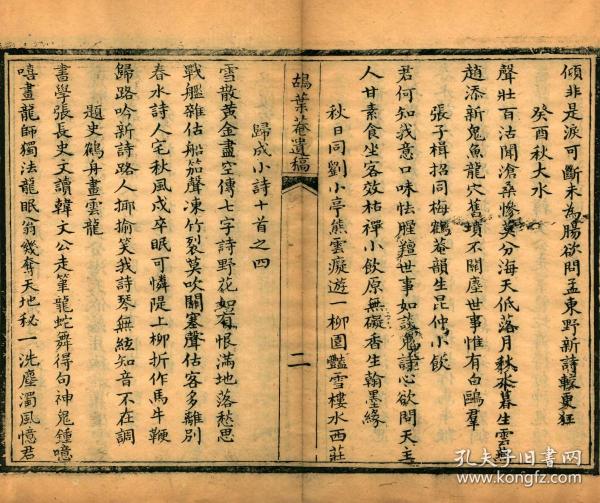 傾非是淚可斷未為腸欲問孟東野新詩較更狂
癸酉秋大水
聲壯百沽聞滄桑慘莫分海天低落月秋水暮生雲
趙添新鬼魚龍穴舊墳不關塵世事惟有白鷗羣
張子楫招同梅鶴菴韻生昆仲小飲
君何知我意口味怯腥羶世事如談鬼詩心欲問天主
人甘素食坐客效枯禪小飲原無礙香生翰墨緣
秋日同劉小亭熊雲癡遊一柳園豔雪樓水西莊
胡葉菴遺稿
二
歸成小詩十首之四
雪散黃金盡空傳七字詩野花如有恨滿地落愁思
戰艦雜估船笳聲凍竹裂莫吹關塞聲估客多離別
春水詩人宅秋風戍卒眠可憐隄上柳折作馬牛鞭
歸路吟新詩路人揶揄笑我詩琴無絃知音不在調
題史鶴舟畫雲龍
書學張長史文讀韓文公走筆龍蛇舞得句神鬼鍾噫
嘻畫龍師獨法龍眠翁幾奪天地秘一洗塵濁風憶君
孔夫子旧书网
www.kongfz.com